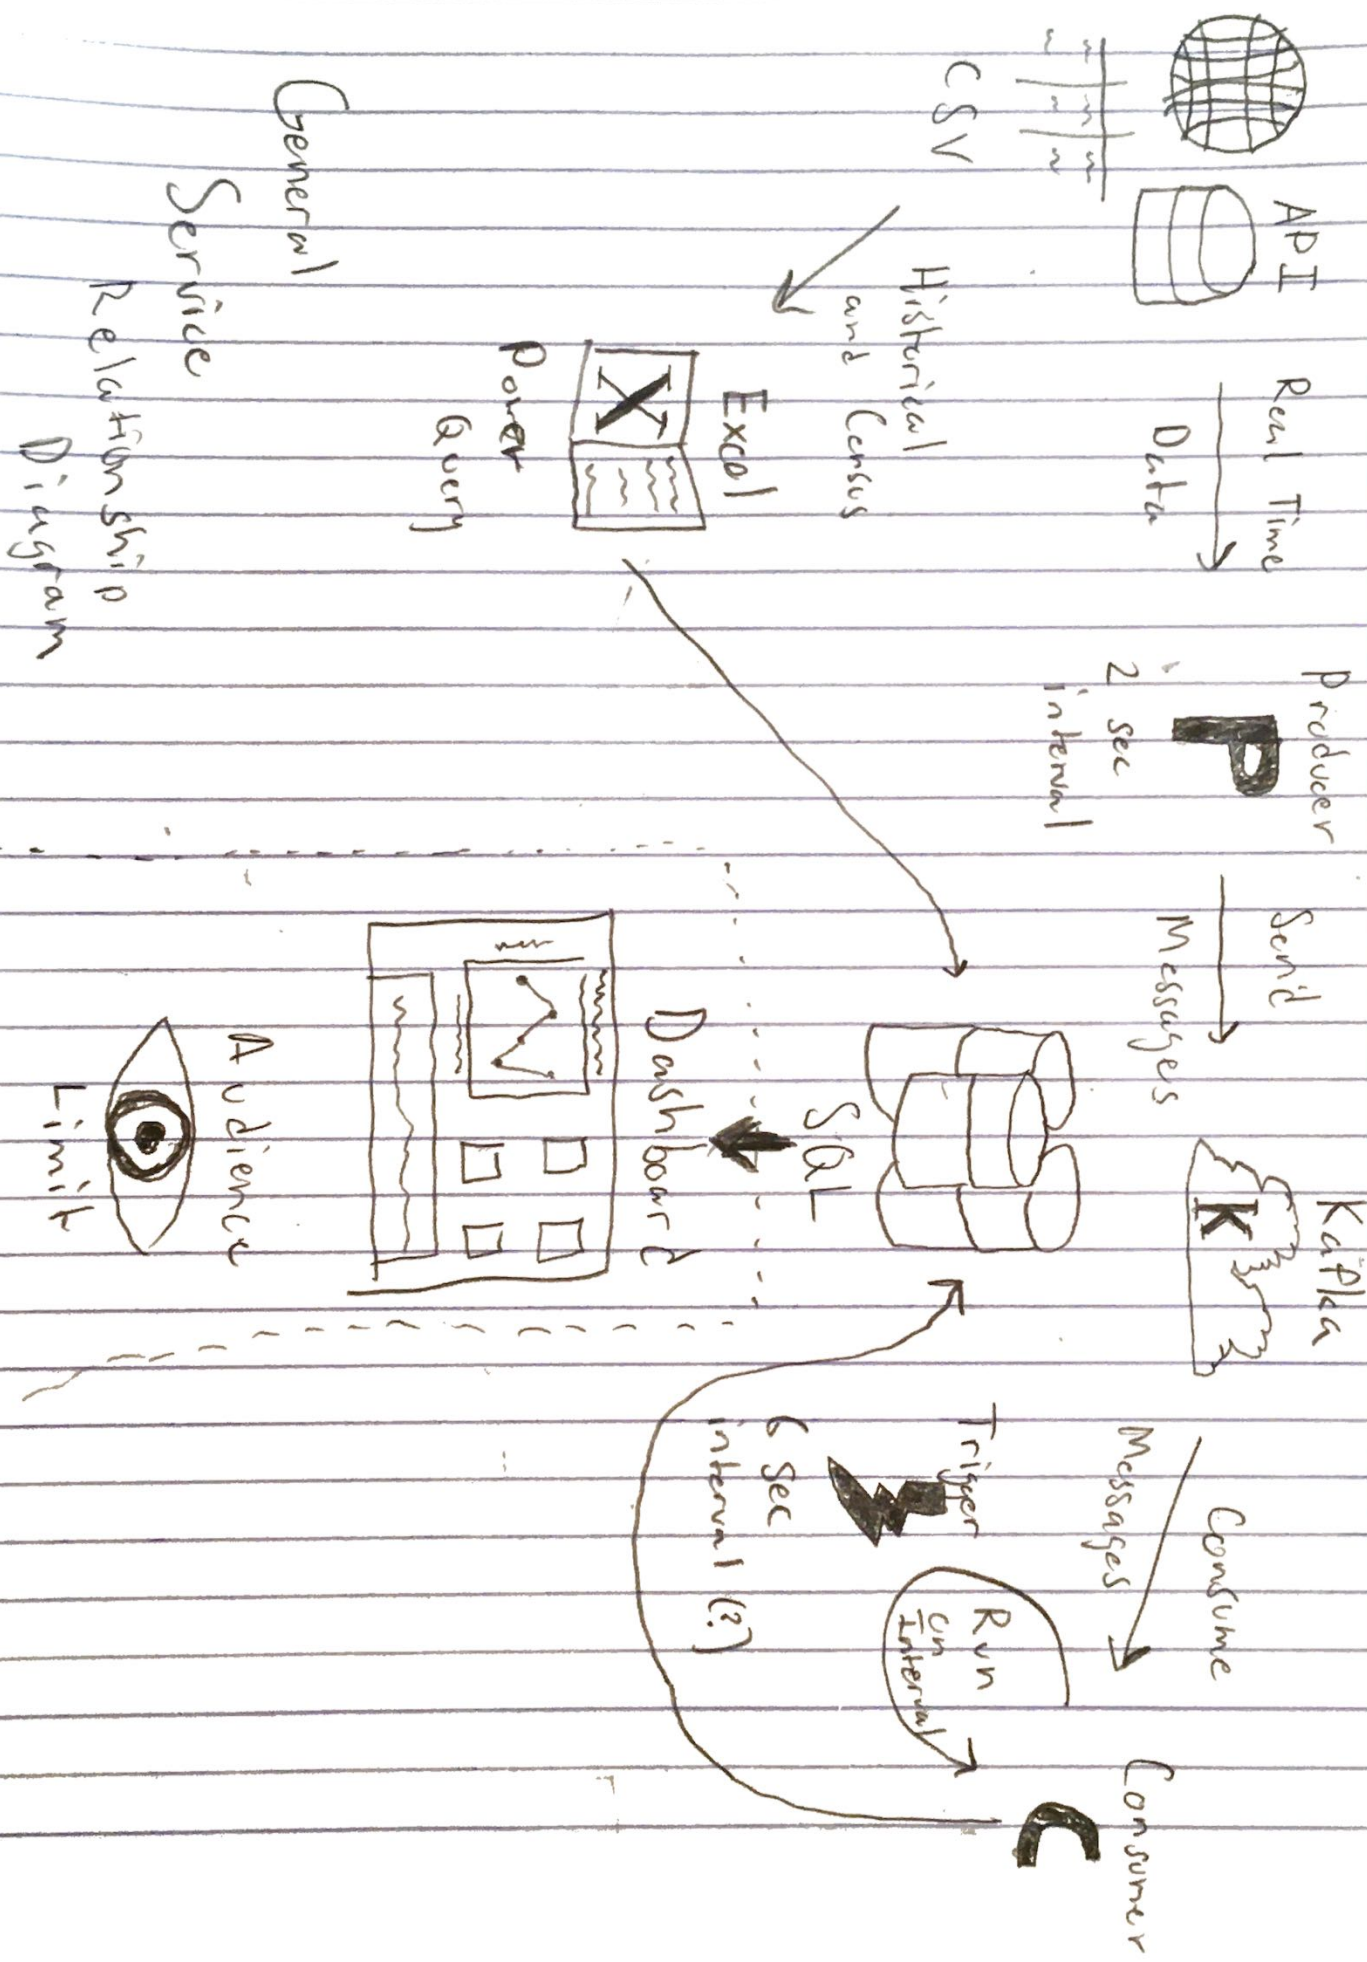 API
CSV
Real Time
Data
Producer
P
2 sec
interval
Send
Messages
Kafka
K
Consume
Messages
Consumer
C
Trigger
6 sec
interval (?)
Run
on
Interval
Historical
and Census
Excel
X
Power
Query
SQL
Dashboard
Audience
Limit
General
Service
Relationship
Diagram